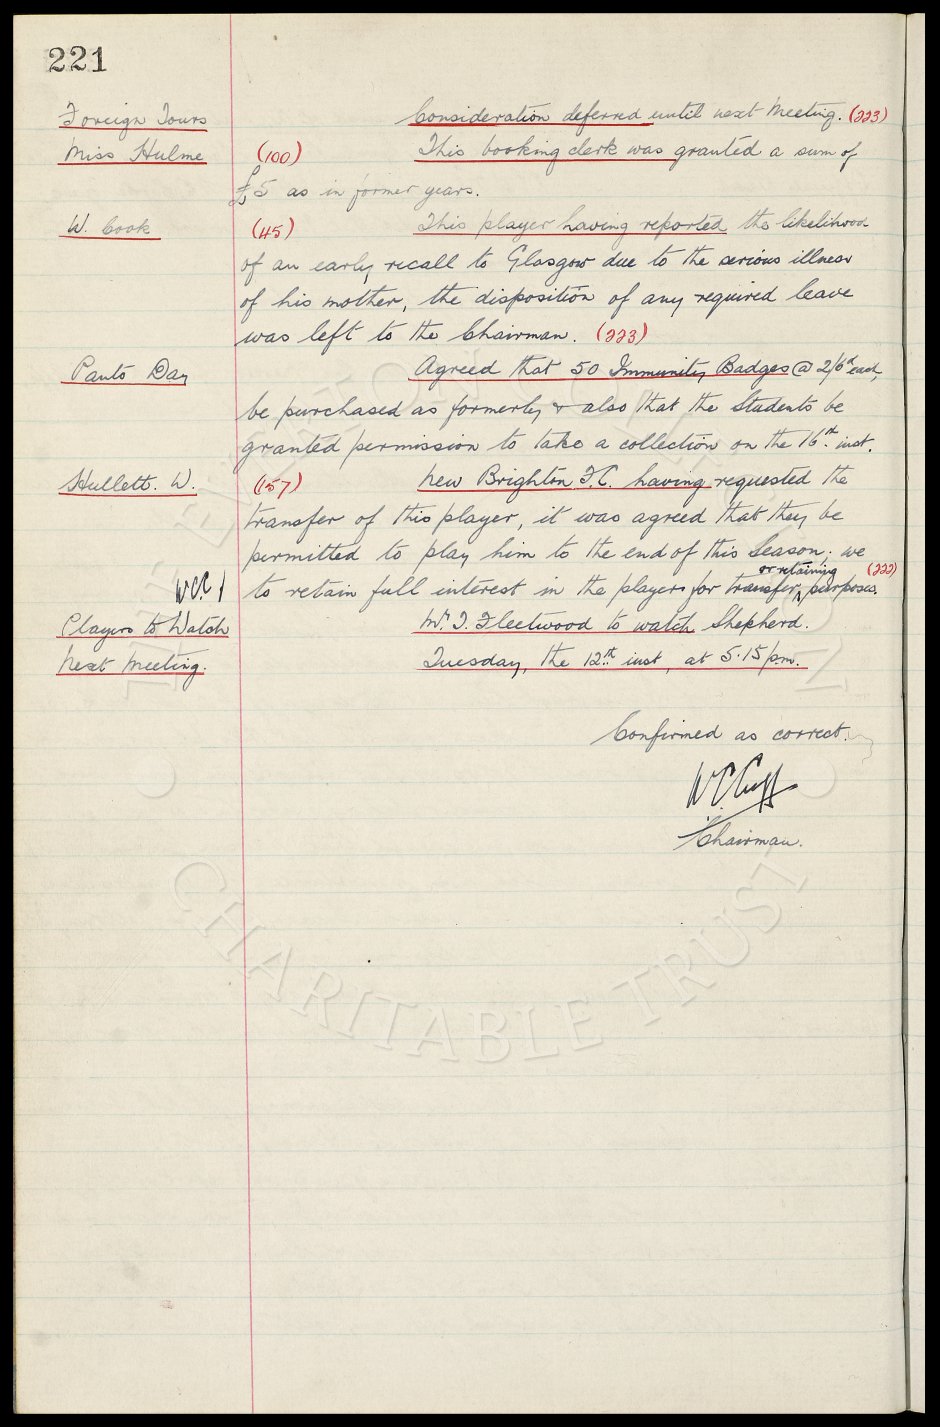 221
Foreign Tours Consideration deferred until next Meeting. (223)
Miss Hulme (100) This booking clerk was granted a sum of
£5 as in former years.
W. Cook (45) This player having reported the likelihood
of an early recall to Glasgow due to the serious illness
of his mother, the disposition of any required leave
was left to the Chairman. (223)
Panto Day Agreed that 50 Immunity Badges @ 2/6d each,
be purchased as formerly & also that the Students be
granted permission to take a collection on the 16th inst.
Hullett. W. (157) New Brighton F.C. having requested the
transfer of this player, it was agreed that they be
permitted to play him to the end of this Season; we
or retaining (222)
WCC to retain full interest in the players for transfer ^ purposes.
Players to Watch Mr. J. Fleetwood to watch Shepherd.
Next Meeting. Tuesday, the 12th inst, at 5.15 pm.
Confirmed as correct.
WC Cuff
Chairman.
THE EVERTON COLLECTION
CHARITABLE TRUST